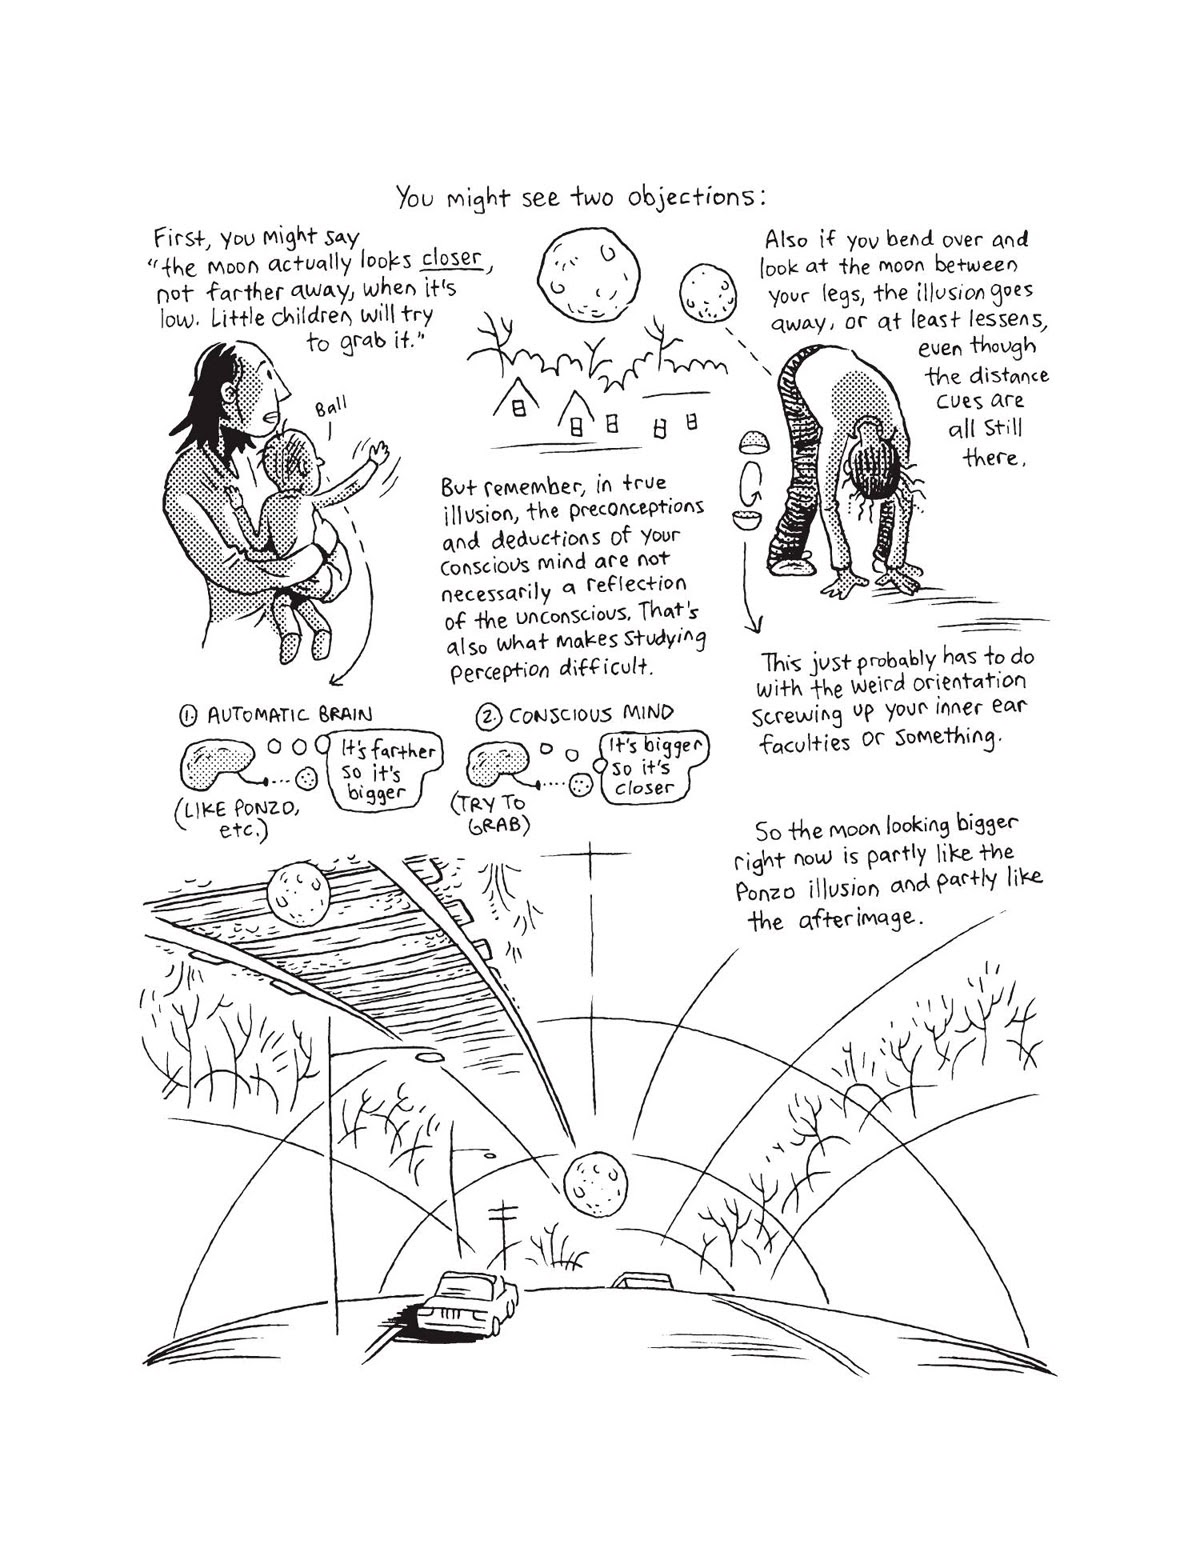 You might see two objections:
First, you might say
"the moon actually looks closer,
not farther away, when it's
low. Little children will try
to grab it."
Ball
Also if you bend over and
look at the moon between
your legs, the illusion goes
away, or at least lessens,
even though
the distance
cues are
all still
there.
But remember, in true
illusion, the preconceptions
and deductions of your
conscious mind are not
necessarily a reflection
of the unconscious. That's
also what makes studying
perception difficult.
This just probably has to do
with the weird orientation
screwing up your inner ear
faculties or something.
1. AUTOMATIC BRAIN
It's farther
so it's
bigger
(LIKE PONZO,
etc.)
2. CONSCIOUS MIND
It's bigger
so it's
closer
(TRY TO
GRAB)
So the moon looking bigger
right now is partly like the
Ponzo illusion and partly like
the afterimage.